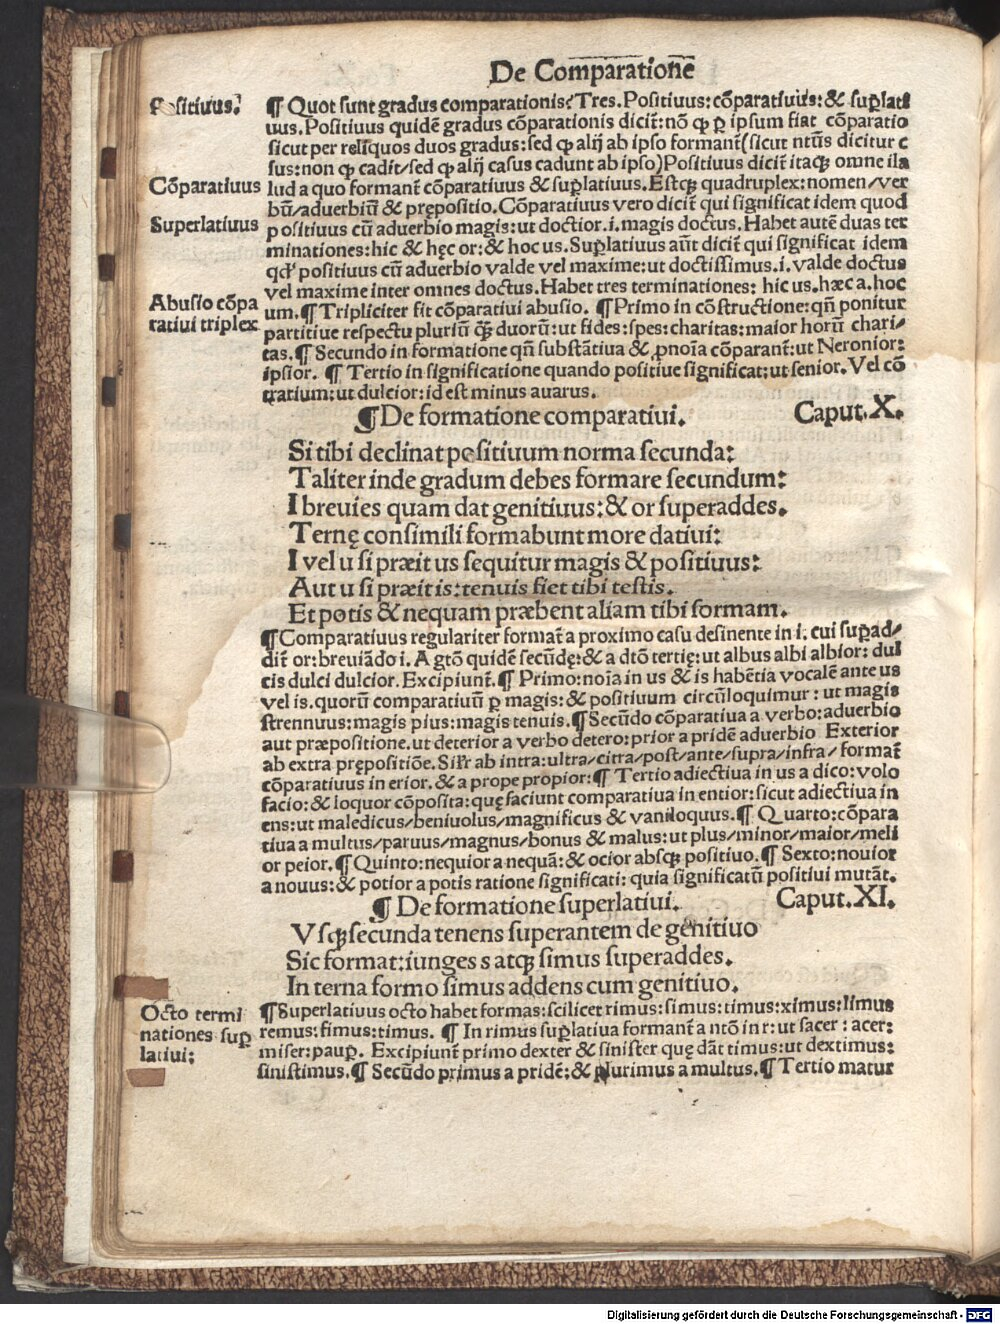 De Comparatione̅
Positiuus.
¶ Quot sunt gradus comparationis? Tres. Positiuus: cōparatiuus: & sup̲lati
uus. Positiuus quidē gradus cōparationis dicit̄: nō ꝙ ꝑ ipsum fiat cōparatio
sicut per reliquos duos gradus: sed ꝙ alij ab ipso formant̄ (sicut nt̄us dicitur c
sus: non ꝙ cadit/ sed ꝙ alij casus cadunt ab ipso) Positiuus dicit̄ itaqꝫ omne illa
Cōparatiuus
lud a quo formant̄ cōparatiuus & suꝑlatiuus. Estqꝫ quadruplex: nomen/ ver
bū/ aduerbiū & prępositio. Cōparatiuus vero dicit̄ qui significat idem quod
Superlatiuus
positiuus cū aduerbio magis: ut doctior .i. magis doctus. Habet autē duas ter
minationes: hic & hęc or: & hoc us. Suꝑlatiuus aūt dicit̄ qui significat idem
qđ positiuus cū aduerbio valde vel maxime: ut doctissimus .i. valde doctus
vel maxime inter omnes doctus. Habet tres terminationes: hic us. hæc a. hoc
Abusio cōpa
ratiui triplex
um. ¶ Tripliciter fit cōparatiui abusio. ¶ Primo in cōstructione: qn̄ ponitur
partitiue respectu pluriū q̄ꝫ duorū: ut fides: spes: charitas: maior horū chari/
tas. ¶ Secundo in formatione qn̄ substātiua & ꝓnoīa cōparant̄: ut Neronior:
ipsior. ¶ Tertio in significatione quando positiue significat: ut senior. Vel cō
tratium: ut dulcior: id est minus auarus.
¶ De formatione comparatiui. Caput. X.
Si tibi declinat positiuum norma secunda:
Taliter inde gradum debes formare secundum:
I breuies quam dat genitiuus: & or superaddes.
Ternę consimili formabunt more datiui:
I vel u si præit us sequitur magis & positiuus:
Aut u si præit is: tenuis fiet tibi testis.
Et potis & nequam præbent aliam tibi formam.
¶ Comparatiuus regulariter format̄ a proximo casu desinente in i. cui suꝑad/
dit̄ or: breuiādo i. A gtō quidē secūdę: & a dtō tertię: ut albus albi albior: dul
cis dulci dulcior. Excipiunt̄. ¶ Primo: noīa in us & is habētia vocalē ante us
vel is. quorū comparatiuū ꝑ magis: & positiuum circūloquimur: ut magis
strennuus: magis pius: magis tenuis. ¶ Secūdo cōparatiua a verbo: aduerbio
aut præpositione. ut deterior a verbo detero: prior a pridē aduerbio Exterior
ab extra prępositiōe. Sil̄r ab intra: ultra/ citra/ post/ ante/ supra/ infra/ format̄
cōparatiuus in erior. & a prope propior: ¶ Tertio adiectiua in us a dico: volo
facio: & loquor cōposita: quę faciunt comparatiua in entior: sicut adiectiua in
ens: ut maledicus/ beniuolus/ magnificus & vaniloquus. ¶ Quarto: cōpara
tiua a multus/ paruus/ magnus/ bonus & malus: ut plus/ minor/ maior/ meli
or peior. ¶ Quinto: nequior a nequā: & ocior absqꝫ positiuo. ¶ Sexto: nouior
a nouus: & potior a potis ratione significati: quia significatū positiui mutāt.
¶ De formatione superlatiui. Caput. XI.
Vsqꝫ secunda tenens superantem de genitiuo
Sic format: iunges s atqꝫ simus superaddes.
In terna formo simus addens cum genitiuo.
Octo termi
nationes suꝑ
latiui:
¶ Superlatiuus octo habet formas: scilicet rimus: simus: timus: ximus: limus
remus: fimus: timus. ¶ In rimus suꝑlatiua formant̄ a ntō in r: ut sacer: acer:
miser: pauꝑ. Excipiunt̄ primo dexter & sinister quę dāt timus: ut dextimus:
sinistimus. ¶ Secūdo primus a pridē: & plurimus a multus. ¶ Tertio matur
Digitalisierung gefördert durch die Deutsche Forschungsgemeinschaft - DFG